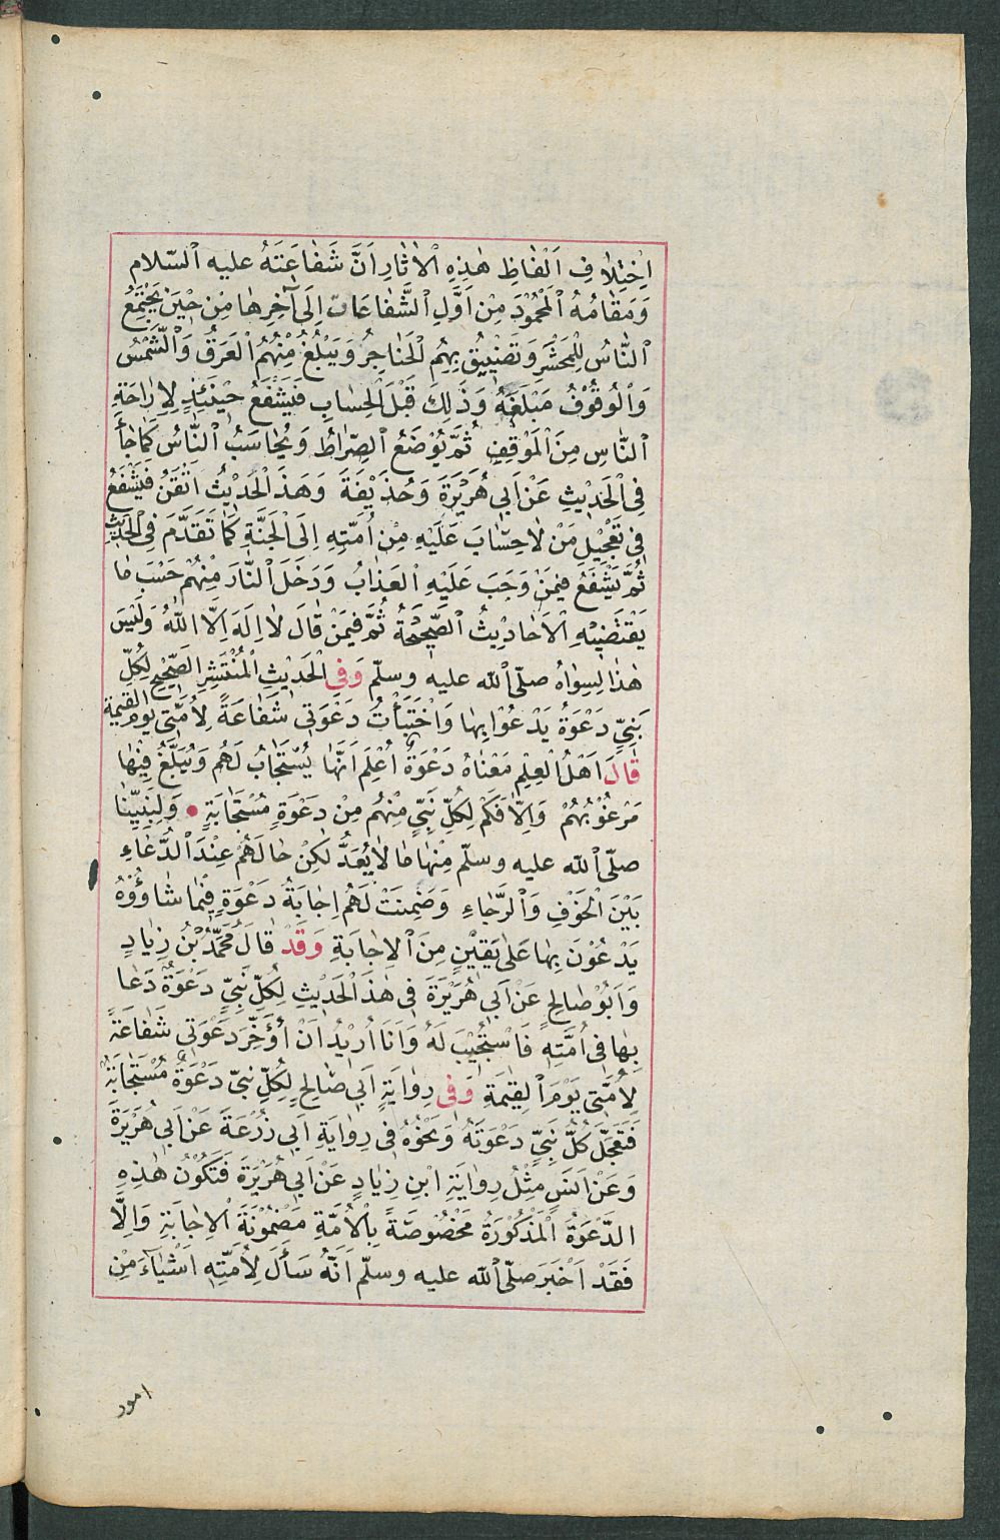 اِخْتِلَافِ اَلْفَاظِ هٰذِهِ الْاٰثَارِ اَنَّ شَفَاعَتَهُ عليه السّلام
وَمَقَامُهُ الْمَحْمُودَ مِنْ اَوَّلِ الشَّفَاعَاتِ اِلَى آخِرِهَا مِنْ حِيْنَ يَجْتَمِعُ
النَّاسُ لِلْمَحْشَرِ وَتَضْيِيْقُ بِهِمُ الْحَنَاجِرُ وَيَبْلُغُ مِنْهُمُ الْعَرَقُ وَالشَّمْسُ
وَالْوُقُوْفُ مَبْلَغَهُ وَذٰلِكَ قَبْلَ الْحِسَابِ فَيَشْفَعُ حِيْنَئِذٍ لِاِرَاحَةِ
النَّاسِ مِنَ الْمَوْقِفِ ثُمَّ يُوْضَعُ الصِّرَاطُ وَيُحَاسَبُ النَّاسُ كَمَا جَاءَ
فِى الْحَدِيْثِ عَنْ اَبِى هُرَيْرَةَ وَحُذَيْفَةَ وَهَذَ الْحَدِيْثُ اَتْقَنُ فَيَشْفَعُ
فِى تَعْجِيْلِ مَنْ لَاحِسَابَ عَلَيْهِ مِنْ اُمَّتِهِ اِلَى الْجَنَّةِ كَمَا تَقَدَّمَ فِى الْحَدِيْثِ
ثُمَّ يَشْفَعُ فِيمَنْ وَجَبَ عَلَيْهِ الْعَذَابُ وَدَخَلَ النَّارَ مِنْهُمْ حَسَبَ مَا
يَقْتَضِيْهِ الْاَحَادِيْثُ الصَّحِيْحَةُ ثُمَّ فِيمَنْ قَالَ لَا اِلَهَ اِلَّا اللّٰهُ وَلَيْسَ
هٰذَا لِسِوَاهُ صلّى اللّه عليه وسلّم وَفِى الْحَدِيْثِ الْمُنْتَشِرِ الصَّحِيْحِ لِكُلِّ
نَبِىٍّ دَعْوَةٌ يَدْعُوْا بِهَا وَاخْتَبَأْتُ دَعْوَتِى شَفَاعَةً لِاُمَّتِى يَوْمَ الْقِيٰمَةِ
قَالَ اَهْلُ الْعِلْمِ مَعْنَاهُ دَعْوَةٌ اُعْلِمَ اَنَّهَا يُسْتَجَابُ لَهُمْ وَيُبَلَّغُ فِيْهَا
مَرْغُوْبُهُمْ وَاِلَّا فَكَمْ لِكُلِّ نَبِىٍّ مِنْهُمْ مِنْ دَعْوَةٍ مُسْتَجَابَةٍ • وَلِنَبِيِّنَا
صلّى اللّه عليه وسلّم مِنْهَا مَا لَا يُعَدُّ لٰكِنْ حَالَهُمْ عِنْدَ الدُّعَاءِ
بَيْنَ الْخَوْفِ وَالرَّجَاءِ وَضُمِنَتْ لَهُمْ اِجَابَةُ دَعْوَةٍ فِيْمَا شَاؤُوْهُ
يَدْعُوْنَ بِهَا عَلٰى يَقِيْنٍ مِنَ الْاِجَابَةِ وَقَدْ قَالَ مُحَمَّدُ بْنُ زِيَادٍ
وَاَبُوْ صَالِحٍ عَنْ اَبِى هُرَيْرَةَ فِى هٰذَ الْحَدِيْثِ لِكُلِّ نَبِىٍّ دَعْوَةٌ دَعَا
بِهَا فِى اُمَّتِهِ فَاسْتُجِيْبَ لَهُ وَاَنَا اُرِيْدُ اَنْ اُؤَخِّرَ دَعْوَتِى شَفَاعَةً
لِاُمَّتِى يَوْمَ الْقِيٰمَةِ وَفِى رِوَايَةِ اَبِى صَالِحٍ لِكُلِّ نَبِىٍّ دَعْوَةٌ مُسْتَجَابَةٌ
فَتَعَجَّلَ كُلُّ نَبِىٍّ دَعْوَتَهُ وَنَحْوُهُ فِى رِوَايَةِ اَبِى زُرْعَةَ عَنْ اَبِى هُرَيْرَةَ
وَعَنْ اَنَسٍ مِثْلُ رِوَايَةِ ابْنِ زِيَادٍ عَنْ اَبِى هُرَيْرَةَ فَتَكُوْنُ هٰذِهِ
الدَّعْوَةُ الْمَذْكُوْرَةُ مَخْصُوصَةً بِالْاُمَّةِ مَضْمُوْنَةَ الْاِجَابَةِ وَاِلَّا
فَقَدْ اَخْبَرَ صلّى اللّه عليه وسلّم اَنَّهُ سَأَلَ لِاُمَّتِهِ اَشْيَاءَ مِنْ
امور